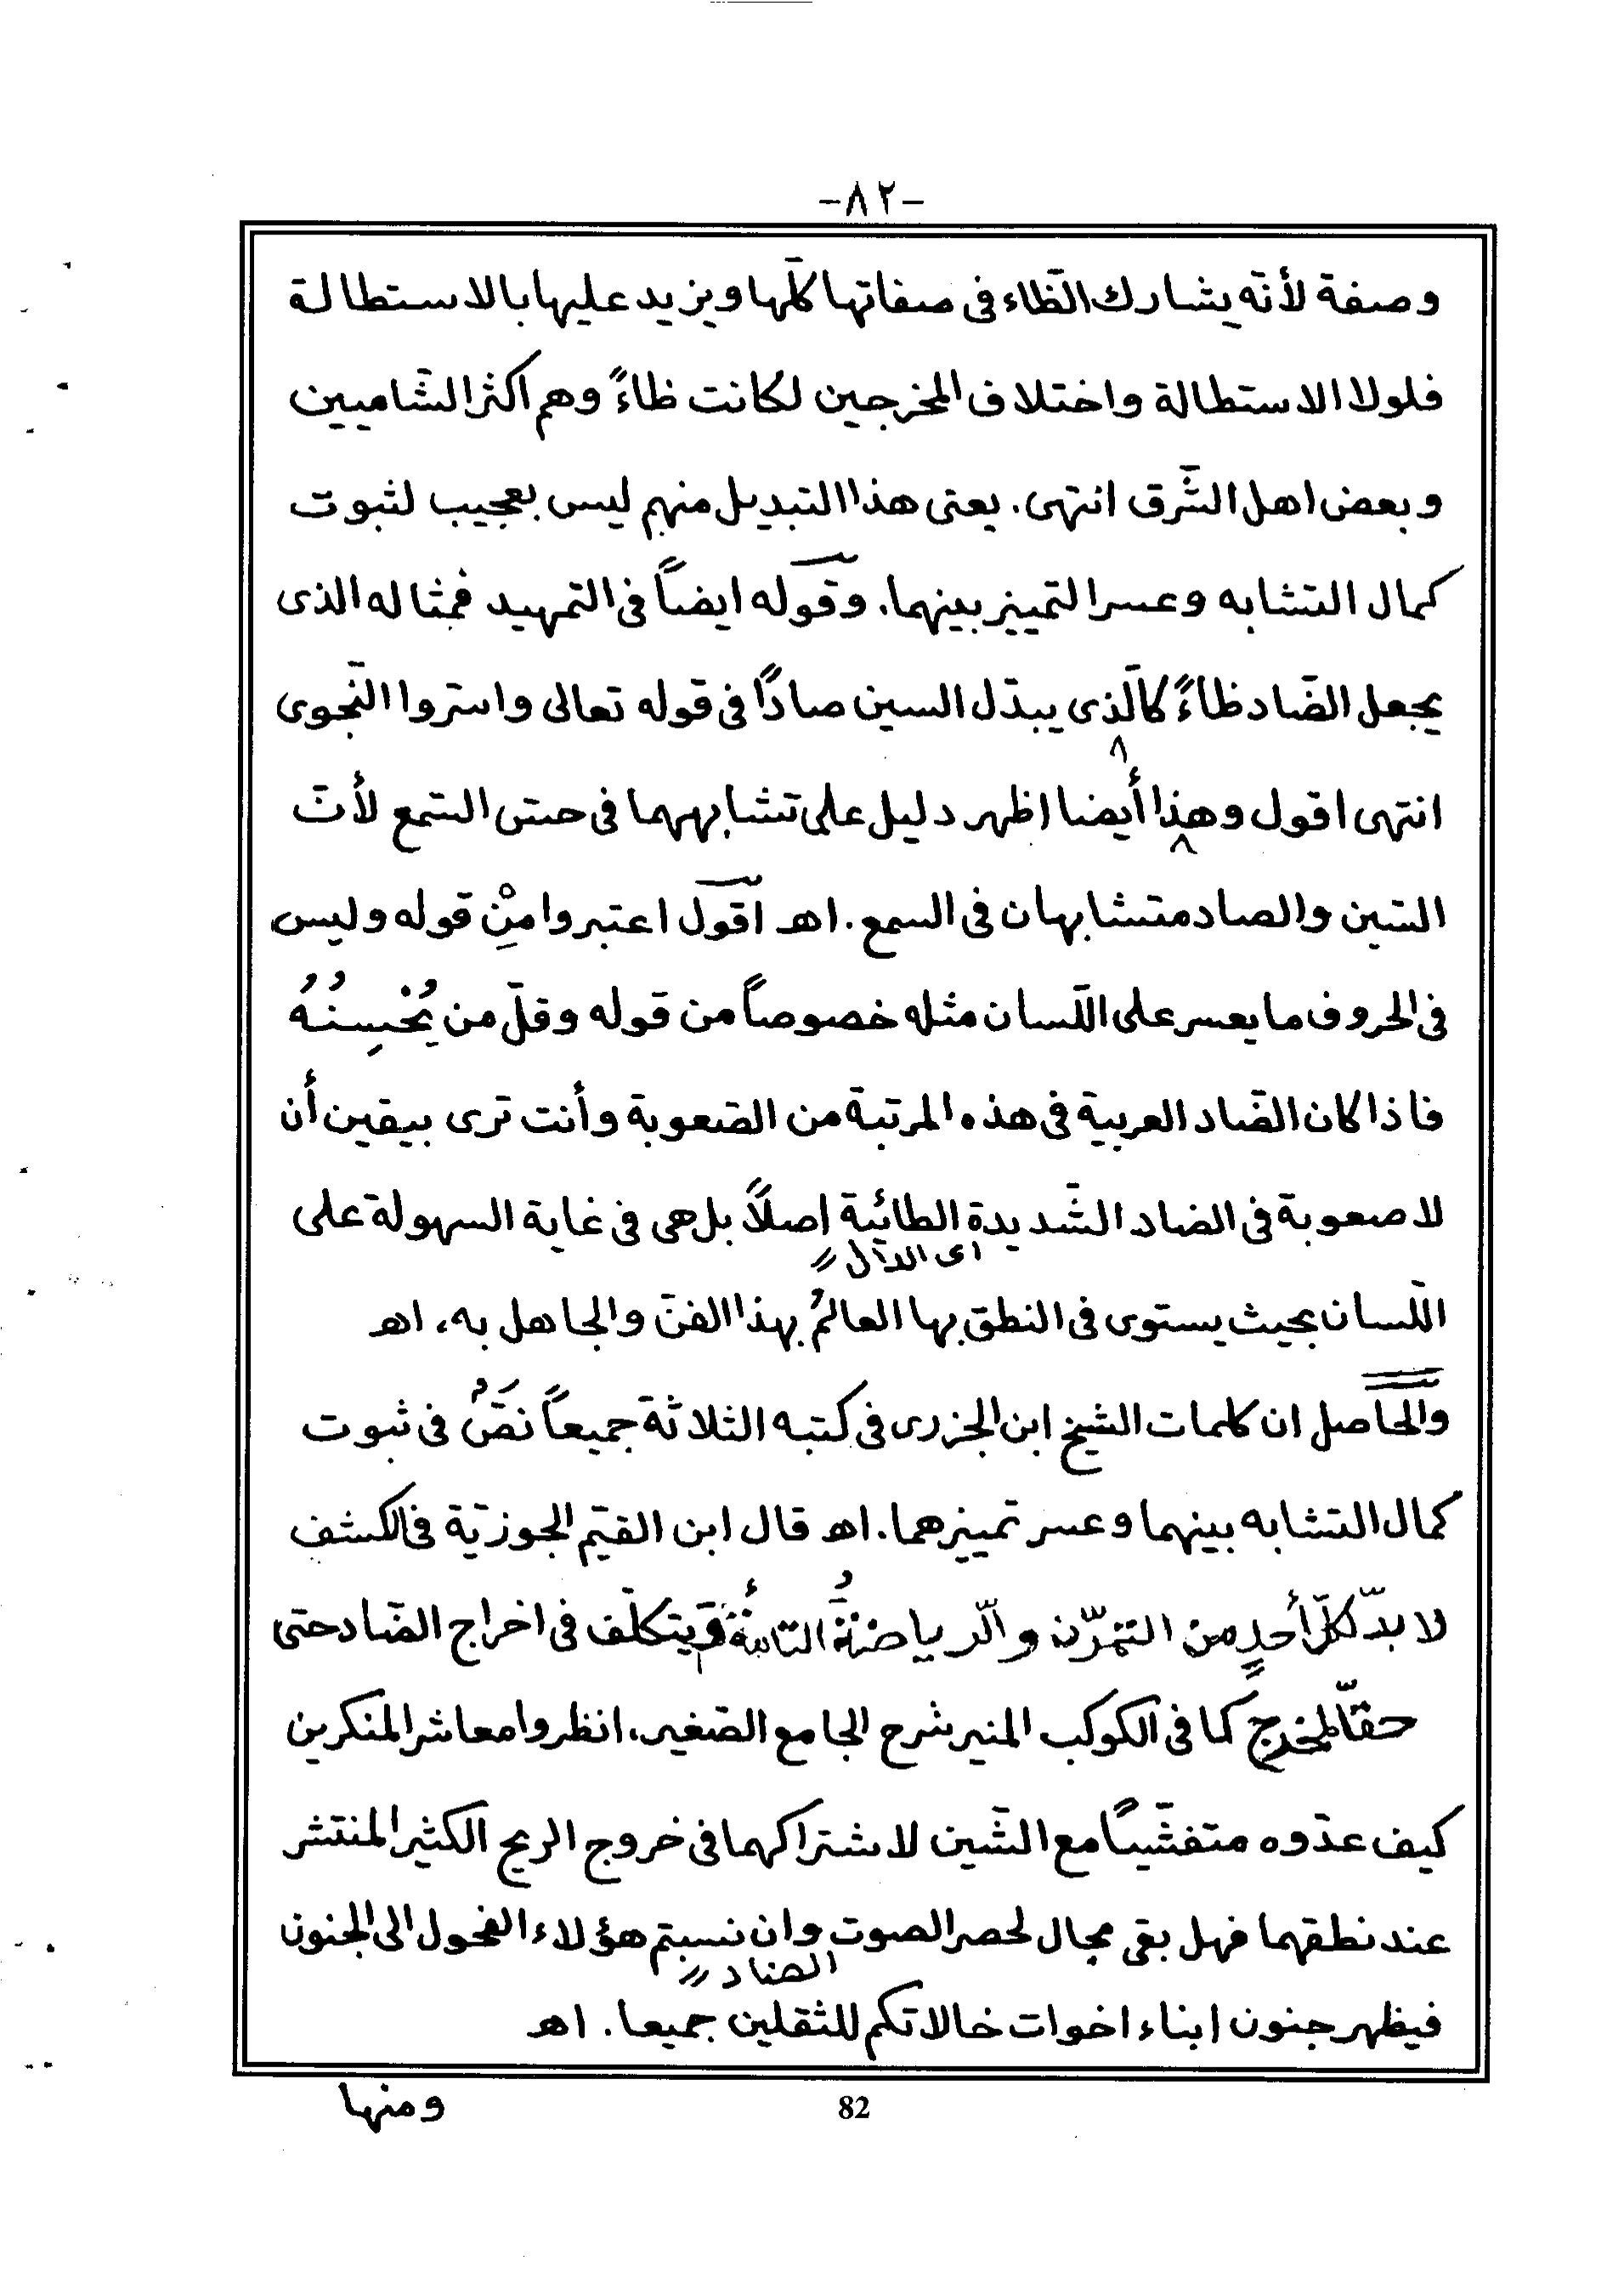 -٨٢-
وصفة لأنّه يشارك الظّاء فى صفاتها كلّها ويزيد عليها بالاستطالة
فلولا الاستطالة واختلاف المخرجين لكانت ظاءً وهم اكثر الشّاميين
وبعض اهل الشّرق انتهى. يعنى هذا التبديل منهم ليس بعجيب لثبوت
كمال التشابه وعسر التمييز بينهما. وقوله ايضاً فى التمهيد فمثاله الذى
يجعل الضّاد ظاءً كالّذى يبدّل السين صادًا فى قوله تعالى واسروا النّجوى
انتهى اقول وهذا أيضا اظهر دليل على تشابههما فى حسّ السّمع لأنّ
السّين والصاد متشابهان فى السمع. اهـ اقول اعتبروا مِنْ قوله وليس
فى الحروف ما يعسر على اللّسان مثله خصوصاً من قوله وقلّ من يُحْسِنُهُ
فاذا كان الضّاد العربية فى هذه المرتبة من الصّعوبة وأنت ترى بيقين أن
لا صعوبة فى الضاد الشّديدة الطائية اصلاً بل هى فى غاية السهولة على
اى الدّال //
اللّسان بحيث يستوى فى النطق بها العالمُ بهذا الفنّ والجاهل به، اهـ
والحاصل ان كلمات الشيخ ابن الجزرى فى كتبه الثلاثة جميعاً نصٌ فى ثبوت
كمال التشابه بينهما وعسر تمييزهما. اهـ قال ابن القيّم الجوزيّة فى الكشف
لا بدّ لكلّ أحدٍ من التمرّن والّرياضةُ التامّةُ ويتكلّف فى اخراج الضّاد حتى
حقّا لمخرج كما فى الكوكب المنير شرح الجامع الصّغير، انظروا معاشر المنكرين
كيف عدّوه متفشّياً مع الشّين لاشتراكهما فى خروج الريح الكثير المنتشر
عند نطقهما فهل بقى مجال لحصر الصوت وان نسبتم هؤلاء الفحول الى الجنون
الضاد //
فيظهر جنون ابناء اخوات خالاتكم للثقلين جميعا. اهـ
ومنها
82